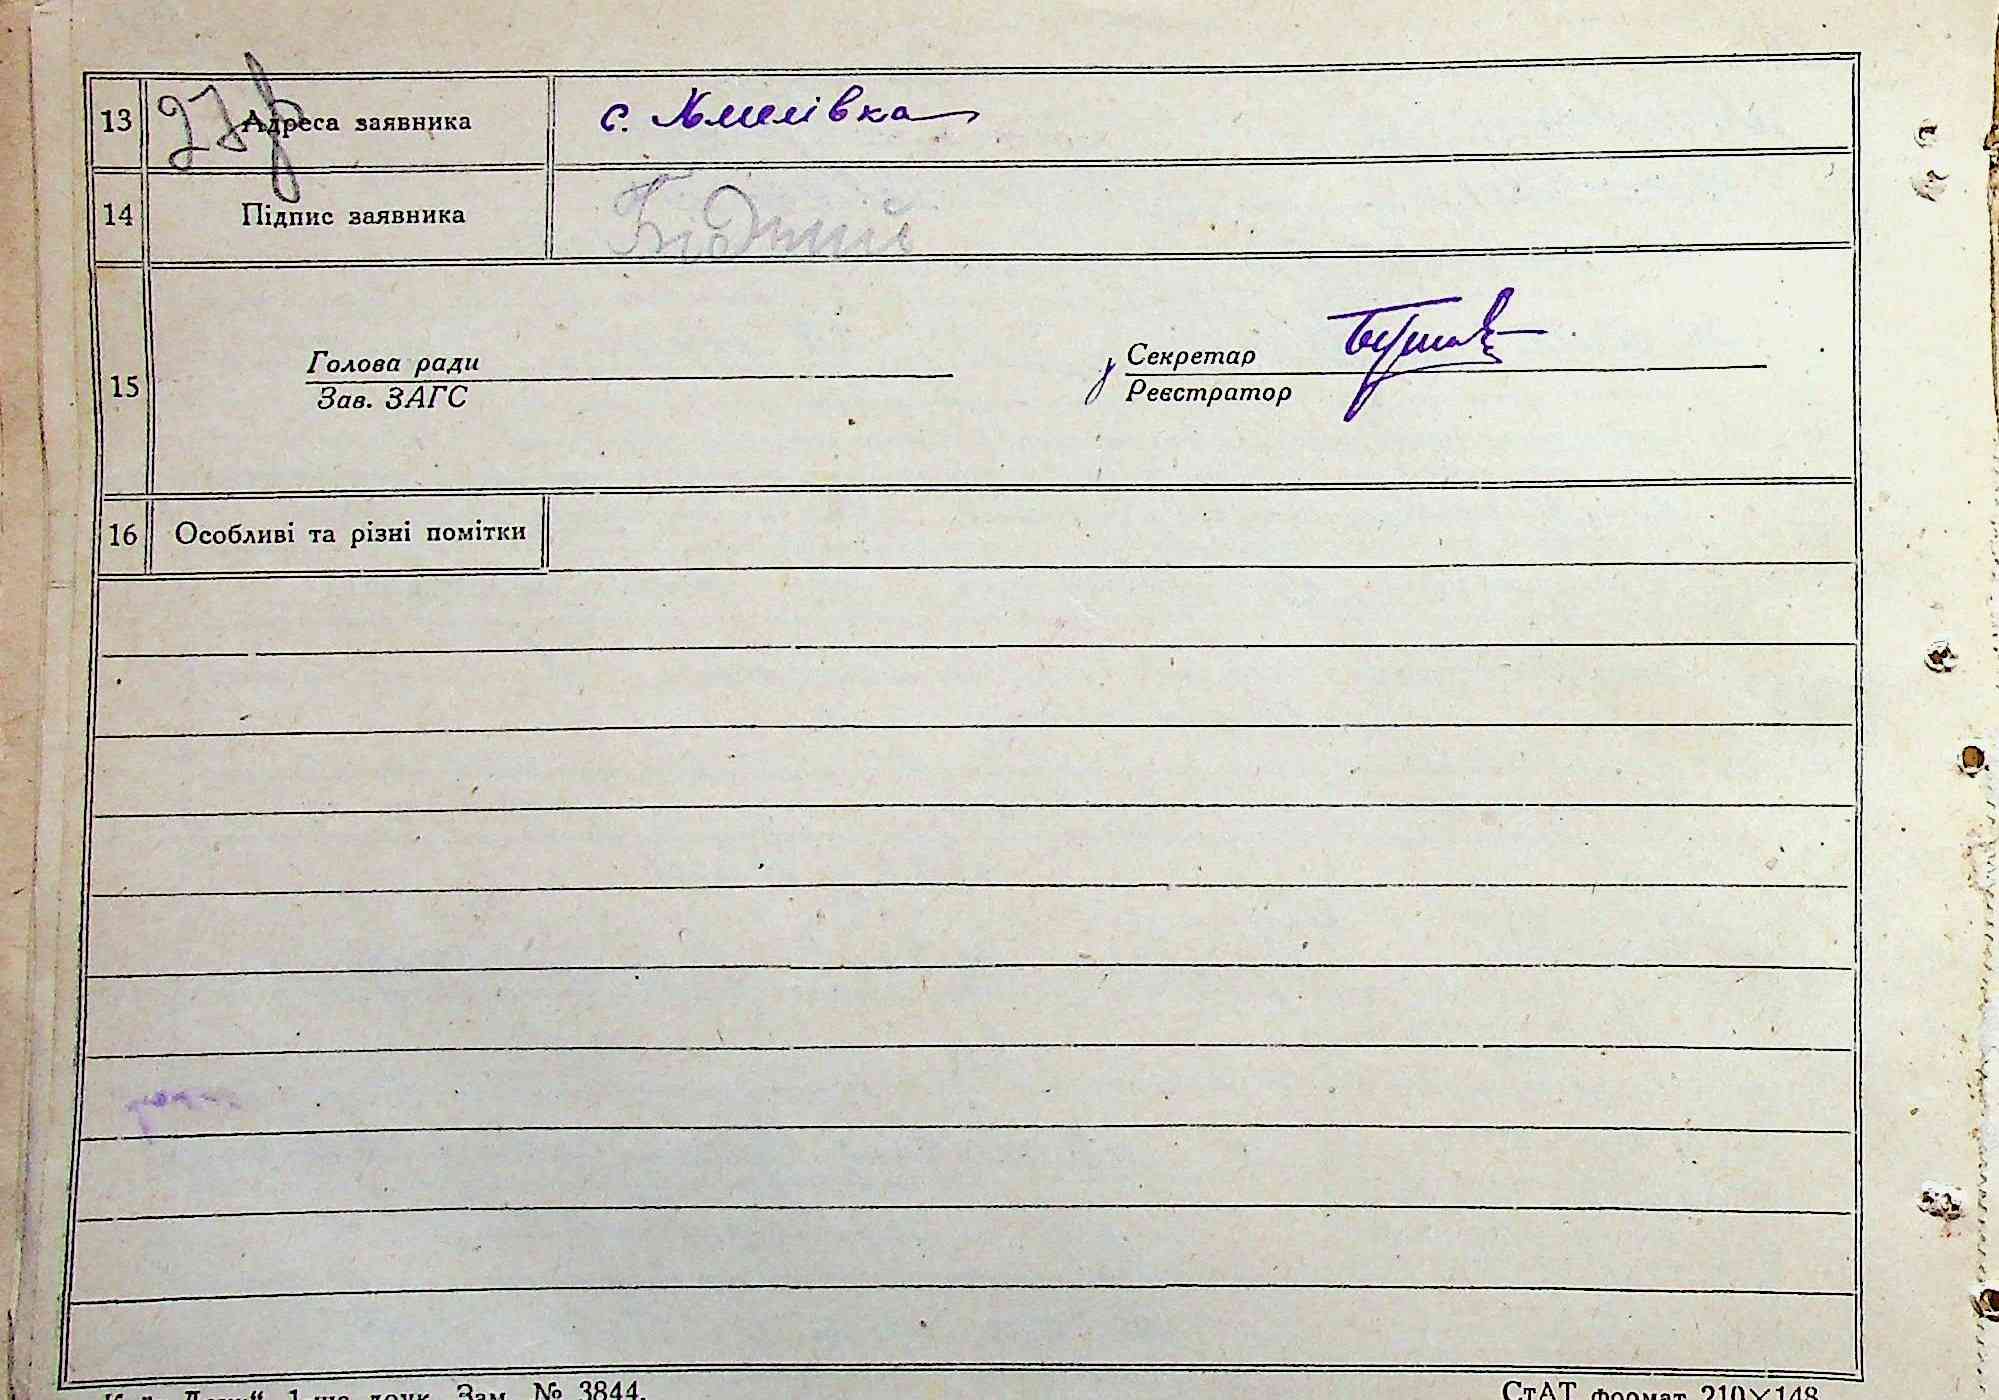 13 Адреса заявника с. Хмилівка
14 Підпис заявника Бідний
15
Голова ради
Зав. ЗАГС
Секретар
Реєстратор
16 Особливі та різні помітки
1 Зам. № 3844.
СтАТ формат 210×148